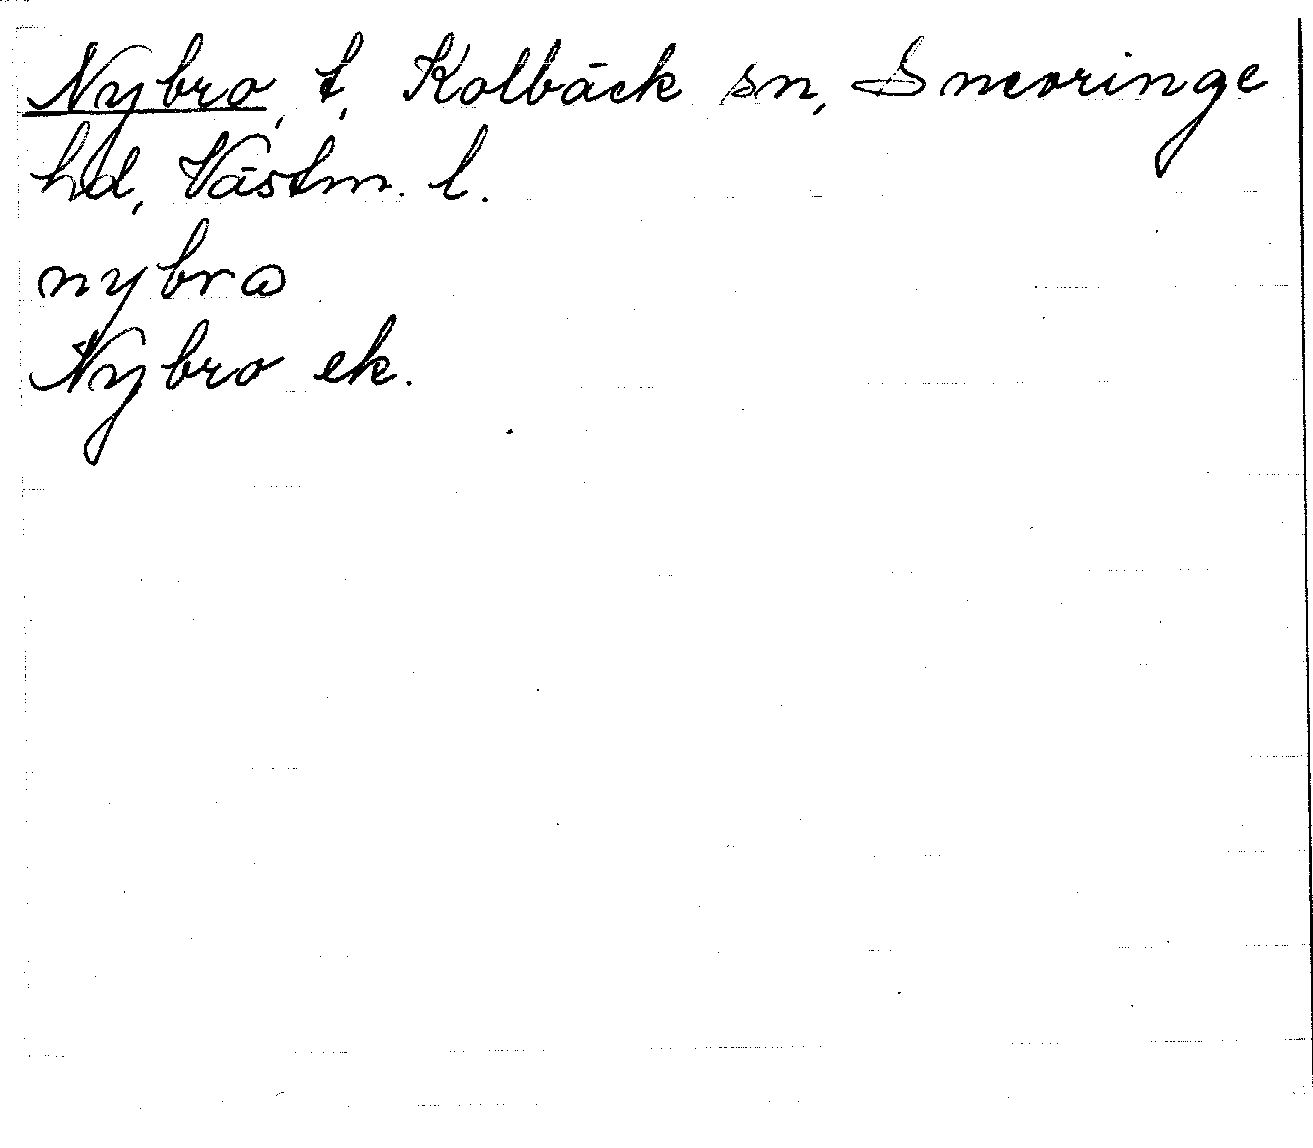 Nybro, t, Kolbäck sn, Snevringe
hd, Västm. l.
nybrɷ
Nybro ek.